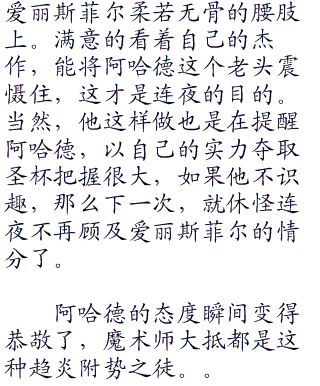 爱丽斯菲尔柔若无骨的腰肢
上。满意的看着自己的杰
作，能将阿哈德这个老头震
慑住，这才是连夜的目的。
当然，他这样做也是在提醒
阿哈德，以自己的实力夺取
圣杯把握很大，如果他不识
趣，那么下一次，就休怪连
夜不再顾及爱丽斯菲尔的情
分了。
阿哈德的态度瞬间变得
恭敬了，魔术师大抵都是这
种趋炎附势之徒。。